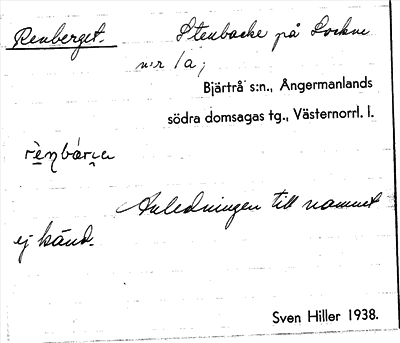 Renberget. Stenbacke på Lockne
n:r 1a;
Bjärtrå s:n., Ångermanlands
södra domsagas tg., Västernorrl. l.
rèŋbárja
Anledningen till namnet
ej känd.
Sven Hiller 1938.